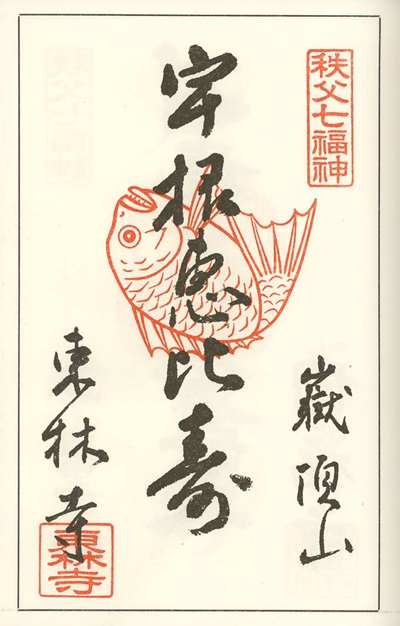 秩父七福神
嶽頂山
宇根恵比寿
東林寺
東林寺